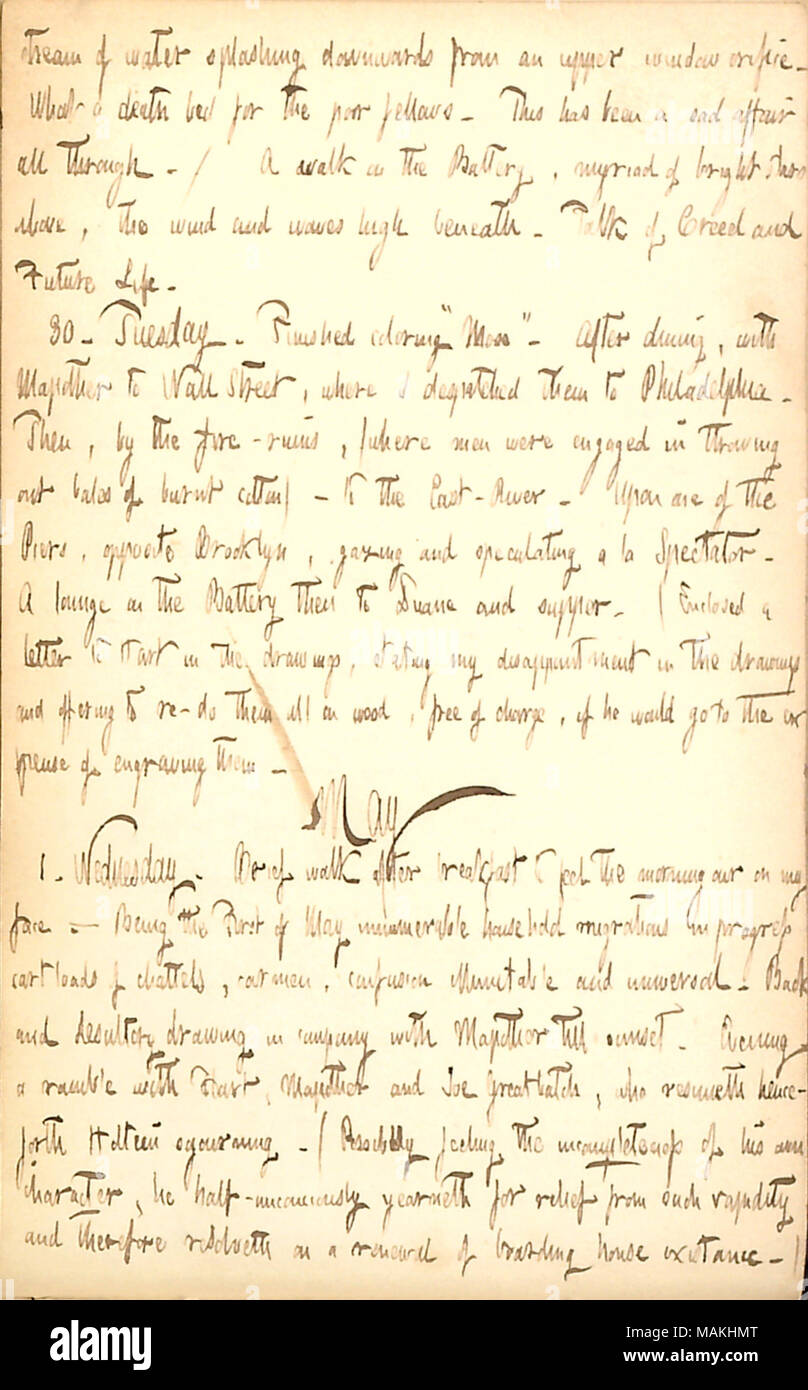 stream of water splashing downwards from an upper window orifice_
What a death bed for the poor fellows_ This has been a sad affair
all through_ / A walk on the Battery, myriad of bright stars
above, the wind and waves high beneath_ Talk of Creed and
Future Life_
30_ Tuesday_ Finished coloring "Mose"_ After dining, with
Mapother to Wall Street, where I despatched them to Philadelphia_
Then, by the fire-ruins, (where men were engaged in throwing
out bales of burnt cotton) _ to the East-River_ Upon one of the
Piers, opposite Brooklyn, gazing and speculating a la Spectator_
A lounge on the Battery then to Duane and supper_ (Enclosed a
letter to Hart in the drawings, stating my disappointment in the drawings
and offering to re-do them all on wood, free of charge, if he would go to the ex
pense of engraving them_
May
1_ Wednesday_ Brief walk after breakfast to feel the morning air on my
face_ Being the First of May innumerable household migrations in progress
cart loads of chattels, carmen, confusion illimitable and universal_ Back
and desultory drawing in company with Mapother till sunset_ Evening
a ramble with Hart, Mapother and Joe Greatbatch, who resumeth hence-
forth Holtein sojourning_ (Possibly feeling the incompleteness of his own
character, he half-unconsciously yearneth for relief from such vapidity
and therefore resolveth on a renewal of boarding house existance_)
alamy
Image ID: MAKHMT
www.alamy.com